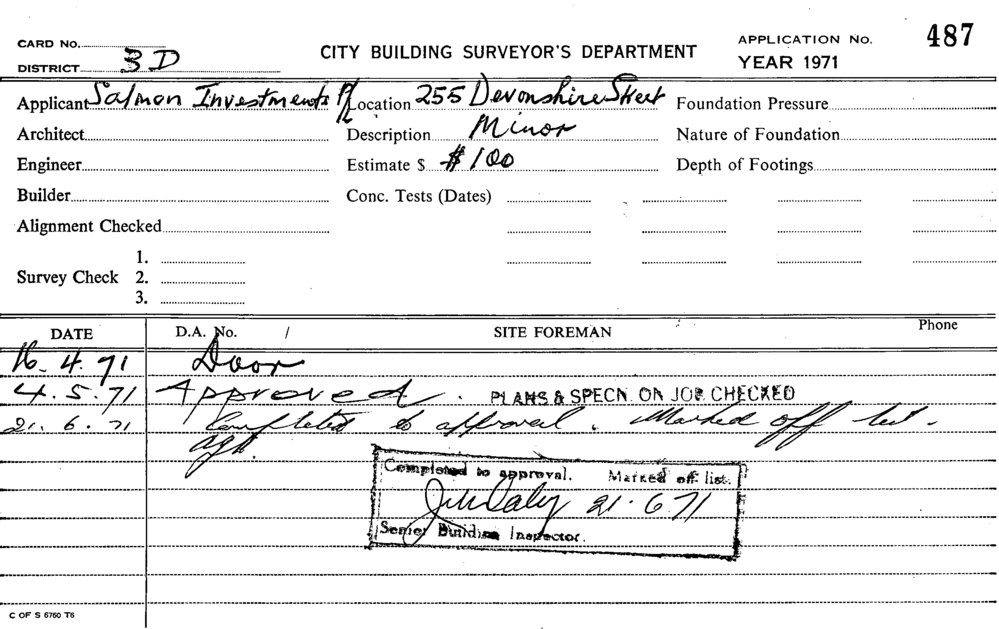 CARD No. CITY BUILDING SURVEYOR'S DEPARTMENT APPLICATION No. 487
DISTRICT 3D YEAR 1971
Applicant Salmon Investments P/L Location 255 Devonshire Street Foundation Pressure
Architect Description Minor Nature of Foundation
Engineer Estimate $ $100 Depth of Footings
Builder Conc. Tests (Dates)
Alignment Checked
1.
Survey Check 2.
3.
DATE D.A. No. / SITE FOREMAN Phone
16.4.71 Door
4.5.71 Approved. PLANS & SPECN. ON JOB CHECKED
21.6.71 Completed to approval. Marked off list.
Completed to approval. Marked off list.
21.6.71
Senior Building Inspector.
C OF S 6760 T6